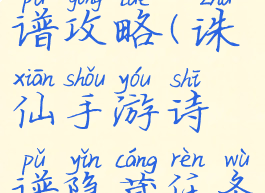 pǔ gōng lüè zhū
谱攻略(诛
xiān shǒu yóu shī
仙手游诗
pǔ yǐn cáng rèn wù
谱隐藏任务